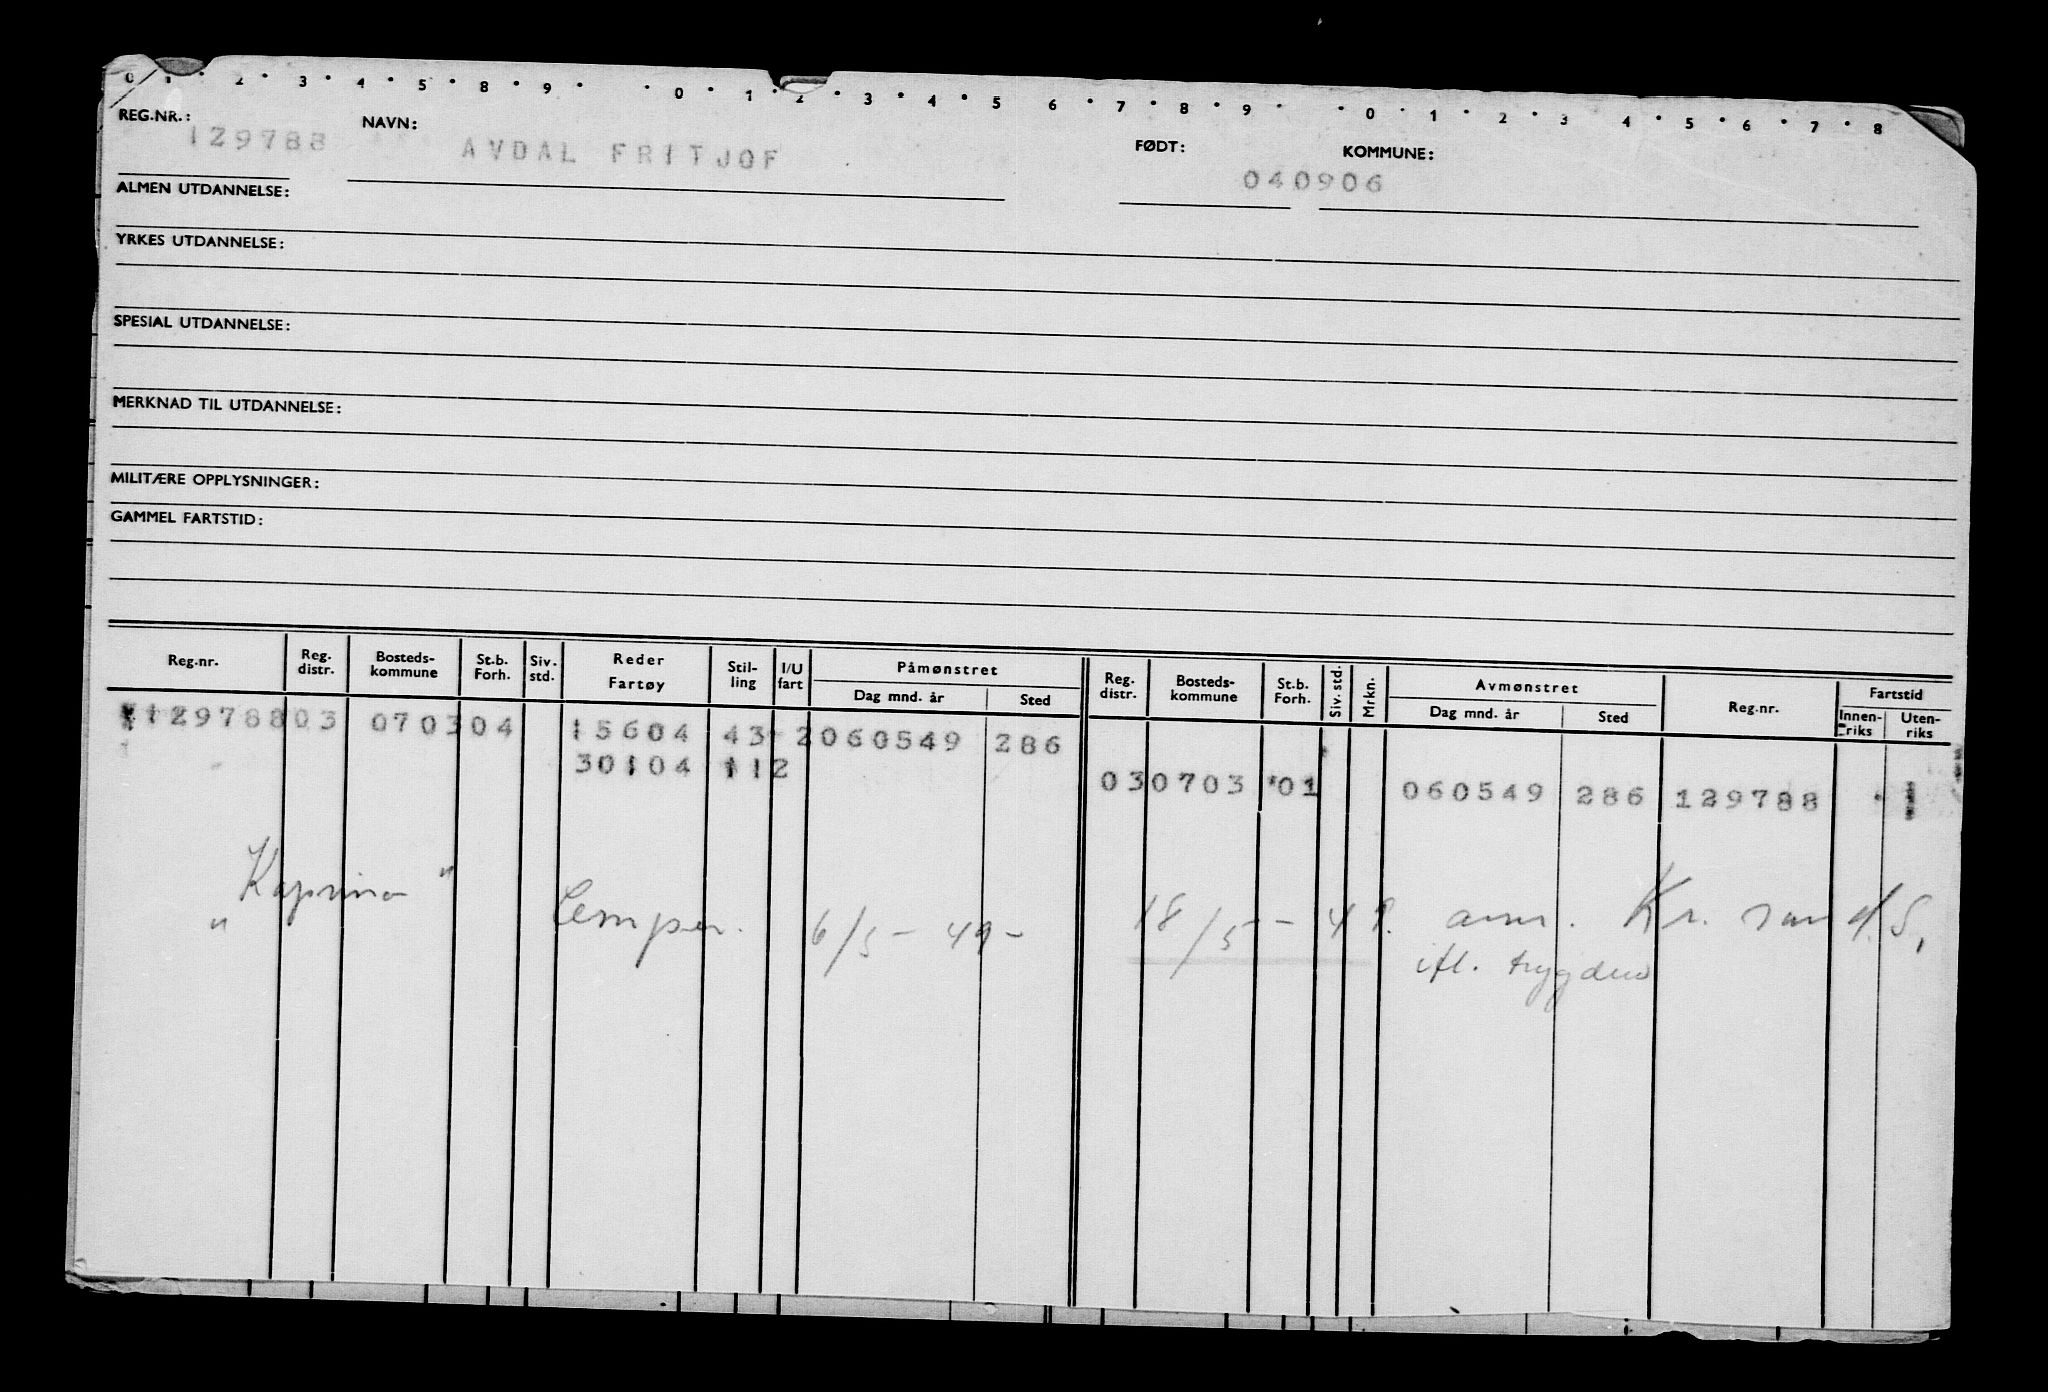 0 1 2 3 4 5 8 9 0 1 2 3 4 5 6 7 8 9 0 1 2 3 4 5 6 7 8
REG.NR.: NAVN: FØDT: KOMMUNE:
129788 AVDAL FRITJOF 040906
ALMEN UTDANNELSE:
YRKES UTDANNELSE:
SPESIAL UTDANNELSE:
MERKNAD TIL UTDANNELSE:
MILITÆRE OPPLYSNINGER:
GAMMEL FARTSTID:
Reg.nr. Reg. distr. Bosteds-kommune St.b. Forh. Siv. std. Reder Fartøy Stil-ling I/U fart Påmønstret Dag mnd. år Sted Reg. distr. Bosteds-kommune St.b. Forh. Siv. std. Mrkn. Avmønstret Dag mnd. år Sted Reg.nr. Fartstid Innen-riks Uten-riks
129788 03 0703 04 15604 43 2 060549 286
30104 112
03 0703 01 060549 286 129788 1
"Kaprino" 6/5 - 49 - 18/5 - 49. Kr. san d. S.
ifl. trygden